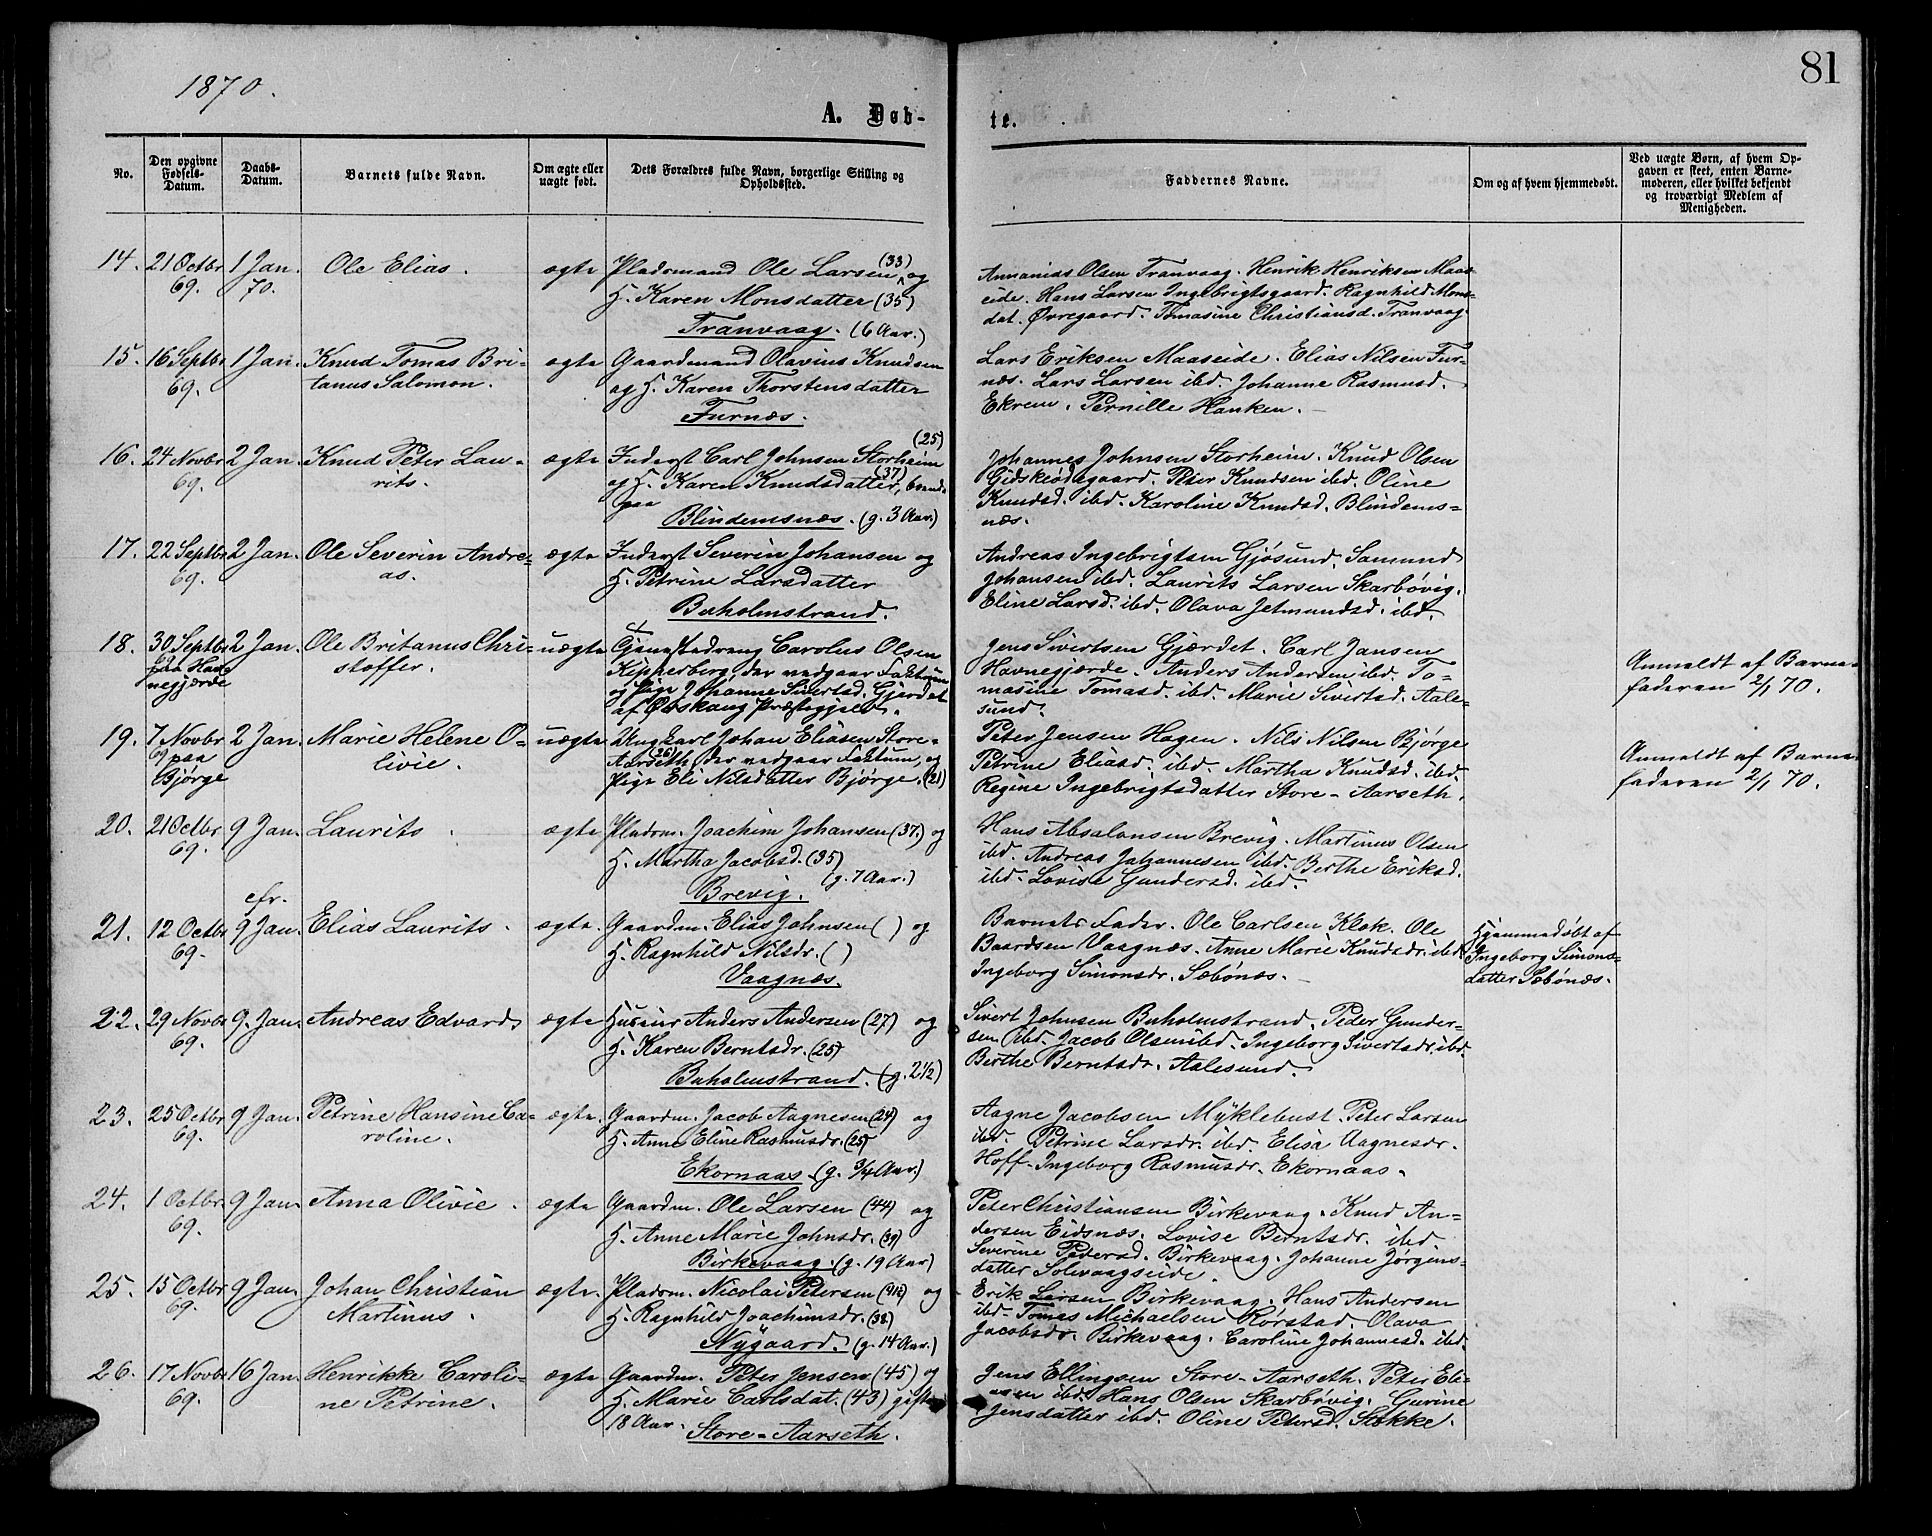 1870.
81
A. Døb-
te.
No.
Den opgivne Fødsels-Datum.
Daabs-Datum.
Barnets fulde Navn.
Om ægte eller uægte født.
Dets Forældres fulde Navn, borgerlige Stilling og Opholdssted.
Faddernes Navne.
Om og af hvem hjemmedøbt.
Ved uægte Børn, af hvem Opgaven er skeet, enten Barnemoderen, eller hvilket bekjendt og troværdigt Medlem af Menigheden.
14. 21 Octbr 69. 1 Jan. 70. Ole Elias. ægte
Pladsmand Ole Larsen (33) og
H. Karen Monsdatter (35)
Tranvaag. (6 Aar.)
Annanias Olsen Tranvaag. Henrik Henriksen Maas-
eide. Hans Larsen Ingebrigtsgaard. Ragnhild Mons-
dat. Øvregaard. Tomasine Christiansd. Tranvaag.
15. 16 Septbr 69. 1 Jan. Knud Tomas Bri-
tanus Salomon. ægte
Gaardmand Olavius Knudsen
og H. Karen Thorstensdatter
Furnæs.
Lars Eriksen Maaseide. Elias Nilsen Fur-
næs. Lars Larsen ibd. Johanne Rasmusd.
Ekrem. Pernille Hanken.
16. 24 Novbr 69. 2 Jan. Knud Peter Lau-
rits. ægte
(25)
Inderst Carl Johnsen Storheim
og H. Karen Knudsdatter, (37)
paa
Blindemsnæs. (g. 3 Aar.)
Johannes Johnsen Storheim. Knud Olsen
Gidskeødegaard. Peter Knudsen ibd. Oline
Knudsd. ibd. Karoline Knudsd. Blindems-
næs.
17. 22 Septbr 69. 2 Jan. Ole Severin Andre-
as. ægte
Inderst Severin Johansen og
H. Petrine Larsdatter
Buholmstrand.
Andreas Ingebrigtsen Gjøsund. Samund
Johansen ibd. Laurits Larsen Skarbøvig.
Eline Larsd. ibd. Olava Jetmundsd. ibd.
18. 30 Septbr 69 paa Hav-
negjærde 2 Jan. Ole Britanus Chri-
stoffer. uægte
Tjenestedreng Carolus Olsen
Kipperberg, der vedgaar Faktum
og Pige Johanne Sivertsd. Gjærdet
af Ørskoug Præstegjeld.
Jens Sivertsen Gjærdet. Carl Jansen
Havnegjærde. Anders Andersen ibd. To-
masine Tomasd. ibd. Marie Sivertsd. Aale-
sund.
Anmeldt af Barne-
faderen 2/1 70.
19. 7 Novbr 69 paa
Bjørge 2 Jan. Marie Helene O-
livie. uægte
Ungkarl Johan Eliasen Store-
Aarseth (26) der vedgaar Faktum, og
Pige Eli Nilsdatter Bjørge. (21)
Peter Jensen Hagen. Nils Nilsen Bjørge
Petrine Eliasd. ibd. Martha Knudsd. ibd.
Regine Ingebrigtsdatter Store-Aarseth.
Anmeldt af Barne-
faderen 2/1 70.
20. 21 Octbr 69. 9 Jan. Laurits. ægte
Pladsm. Joachim Johansen (37.) og
H. Martha Jacobsd. (35)
(g. 7 Aar.)
Brevig.
Hans Absalonsen Brevig. Martinus Olsen
ibd. Andreas Johannesen ibd. Berthe Eriksd.
ibd. Lovise Gundersd. ibd.
21. 12 Octbr 69. cfr.
9 Jan. Elias Laurits. ægte.
Gaardm. Elias Johnsen ( ) og
H. Ragnhild Nilsdr. ( )
Vaagnæs.
Barnets Fader. Ole Carlsen Klok. Ole
Baardsen Vaagnæs. Anne Marie Knudsdr. ibd.
Ingeborg Simonsdr. Sæbønæs.
Hjemmedøbt af
Ingeborg Simons-
datter Sæbønæs.
22. 29 Novbr 69. 9. Jan. Andreas Edvard. ægte
Huseier Anders Andersen (27) og
H. Karen Berntsdr. (25)
Buholmstrand. (g. 2 1/2)
Sivert Johnsen Buholmstrand. Peder Gunder-
sen ibd. Jacob Olsen ibd. Ingeborg Sivertsdr. ibd.
Berthe Berntsdr. Aalesund.
23. 25 Octbr 69. 9 Jan. Petrine Hansine Ca-
roline. ægte.
Gaardm. Jacob Aagnesen (24) og
H. Anne Eline Rasmusdr. (25)
Ekornaas. (g. 3/4 Aar.)
Aagne Jacobsen Myklebust. Peter Larsen
ibd. Petrine Larsdr. ibd. Elisa Aagnesdr.
Hoff. Ingeborg Rasmusdr. Ekornaas.
24. 1 Octbr 69. 9 Jan. Anna Olivie. ægte
Gaardm. Ole Larsen (44) og
H. Anne Marie Johnsdr. (39)
Birkevaag. (g. 19 Aar)
Peter Christiansen Birkevaag. Knud An-
dersen Eidsnæs. Lovise Berntsdr. ibd
Severine Pedersd. Birkevaag. Johanne Jørgens-
datter Solevaagseide.
25. 15 Octbr 69. 9 Jan. Johan Christian
Martinus. ægte.
Pladsm. Nicolai Petersen og
H. Ragnhild Joachimsdr. (38)
Nygaard. (g. 14 Aar.)
Erik Larsen Birkevaag. Hans Andersen
ibd. Tomas Michaelsen Rørstad. Olava
Jacobsdr. Birkevaag. Caroline Johannesd. ibd.
26. 17 Novbr 69. 16 Jan. Henrikke Caroli-
ne Petrine. ægte
Gaardm. Peter Jensen (45) og
H. Marie Carlsdat. (43) gifte
18 Aar.
Store-Aarseth.
Jens Ellingsen Store-Aarseth. Peter Eli-
asen ibd. Hans Olsen Skarbøvig. Gurine
Jensdatter ibd. Oline Petersd. Stokke.